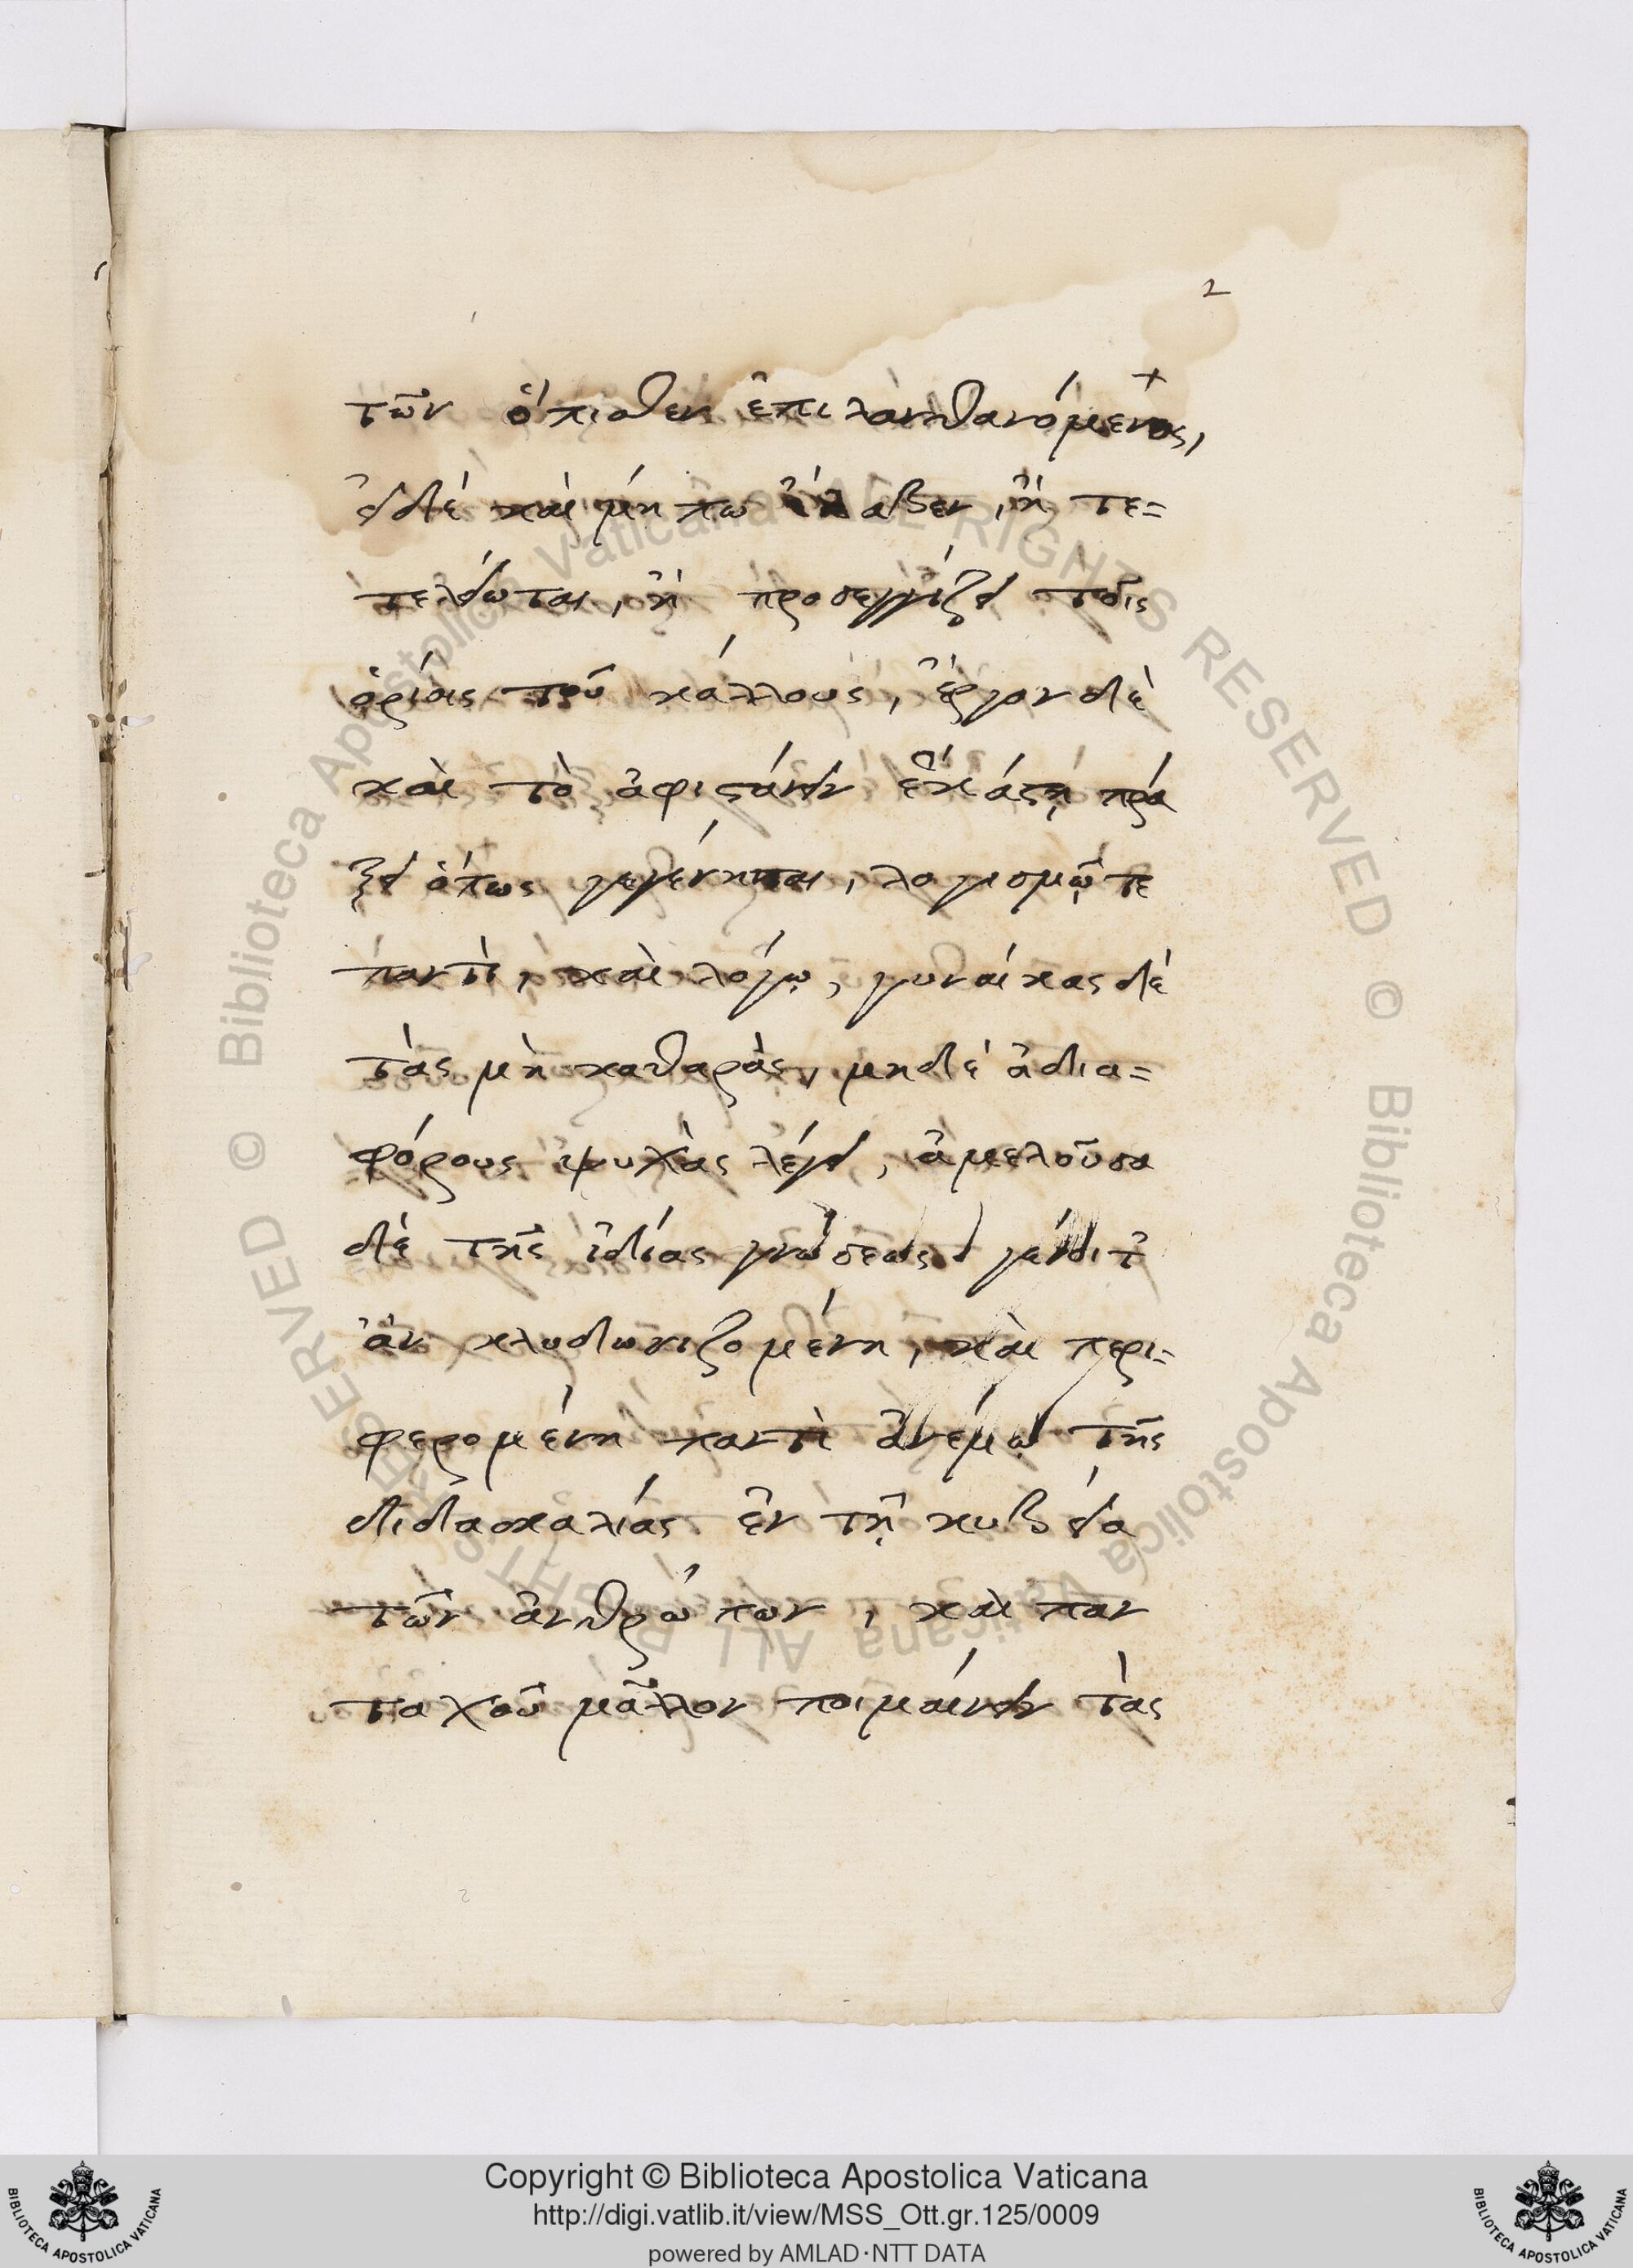 2
τῶν ὄπισθεν ἐπιλανθανόμενος,
εἰ δὲ καὶ μή πω ἔλαβεν, ἢ τε=
τελείωται, ἢ προσεγγίζει τοῖς
ὁρίοις τοῦ κάλλους, ἔργον δὲ
καὶ τὸ ἀφιστάνειν ἑκάστῃ πρά
ξει ὅπως γεγένηται, λογισμῷ τε
παντὶ, καὶ λόγῳ, γυναίκας δὲ
τὰς μὴ καθαρὰς, μηδὲ ἀδια=
φόρους ψυχὰς λέγει, ἀμελοῦσα
δὲ τῆς ἰδίας γνώσεως γένοιτ
ἂν κλυδωνιζομένη, καὶ περι=
φερομένη παντὶ ἀνέμῳ τῆς
διδασκαλίας ἐν τῇ κυβεία
τῶν ἀνθρώπων, καὶ παν
ταχοῦ μᾶλλον ποιμαίνειν τὰς
© Biblioteca Apostolica Vaticana ALL RIGHTS RESERVED © Biblioteca Apostolica Vaticana ALL RIGHTS RESERVED
Copyright © Biblioteca Apostolica Vaticana
http://digi.vatlib.it/view/MSS_Ott.gr.125/0009
powered by AMLAD·NTT DATA
BIBLIOTECA APOSTOLICA VATICANA
BIBLIOTECA APOSTOLICA VATICANA